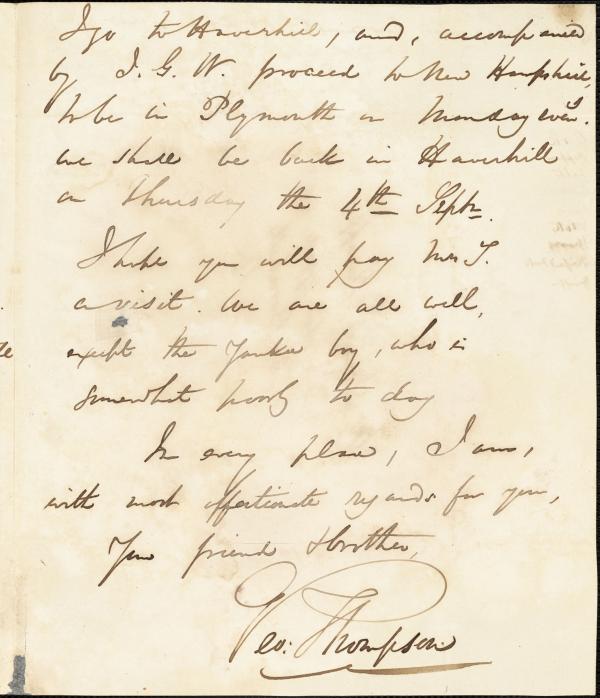 I go to Haverhill, and, accompanied
by J. G. W. proceed to New Hampshire,
to be in Plymouth on Monday
we shall be back in Haverhill
on Thursday the 4th Septr.
I hope you will pay Mrs T.
a visit. We are all well,
except the Yankee boy, who is
somewhat poorly to day
In every place, I am,
with most affectionate regards for you,
Your friend & brother,
Geo: Thompson